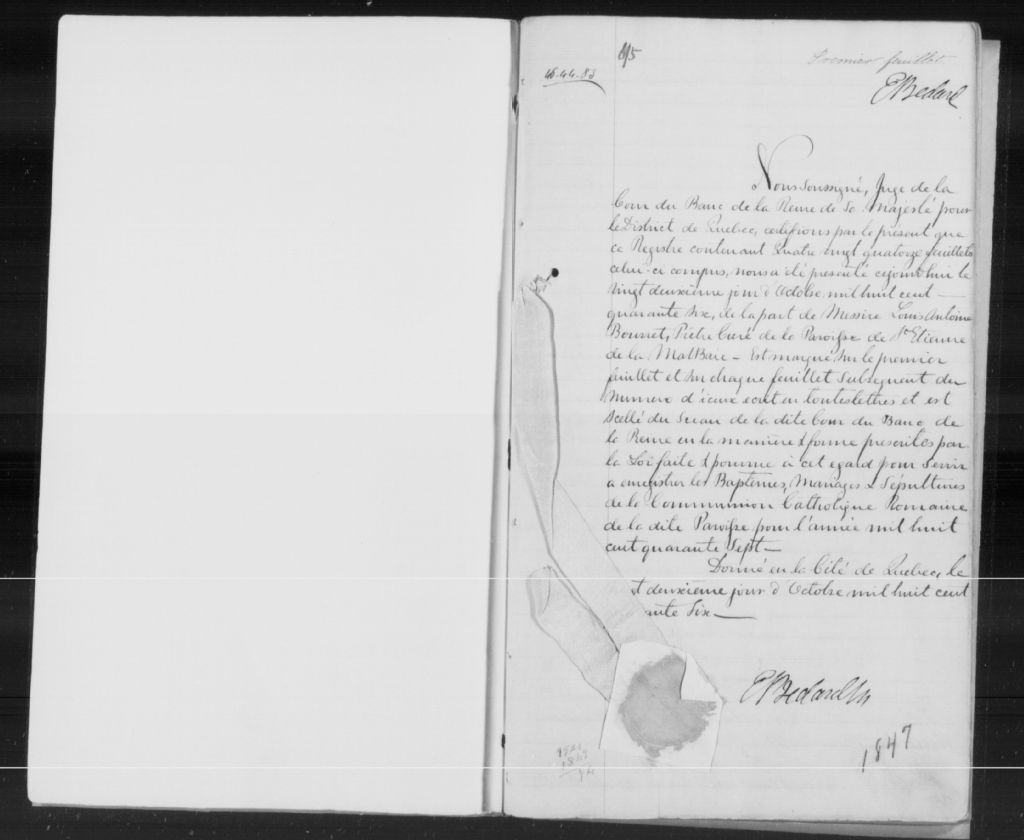 6/5
Premier feuillet
46.44.83
E Bedard
Nous Soussigné, Juge de la
Cour du Banc de la Reine de Sa Majesté pour
le District de Quebec, certifions par le présent que
ce Registre contenant Quatre vingt quatorze feuillets
celui-ci compris, nous a été presenté cejourdhui le
Vingt deuxième jour d'Octobre mil huit cent
quarante six, de la part de Messire Louis Antoine
Bourret, Prêtre Curé de la Paroisse de St Etienne
de la MalBaie - Est marqué sur le premier
feuillet et sur chaque feuillet subsequent du
Numero d'iceux ecrit en toutes lettres et est
Scellé du Sceau de la dite Cour du Banc de
la Reine en la manière & forme prescrites par
la Loi faite & pourvue à cet egard pour servir
a enregistrer les Baptêmes, Mariages & Sépultures
de la Communion Catholique Romaine
de la dite Paroisse pour l'année mil huit
cent quarante Sept —
Donné en la Cité de Quebec, le
t deuxième jour d'Octobre mil huit cent
ante Six —
E Bedard
1847